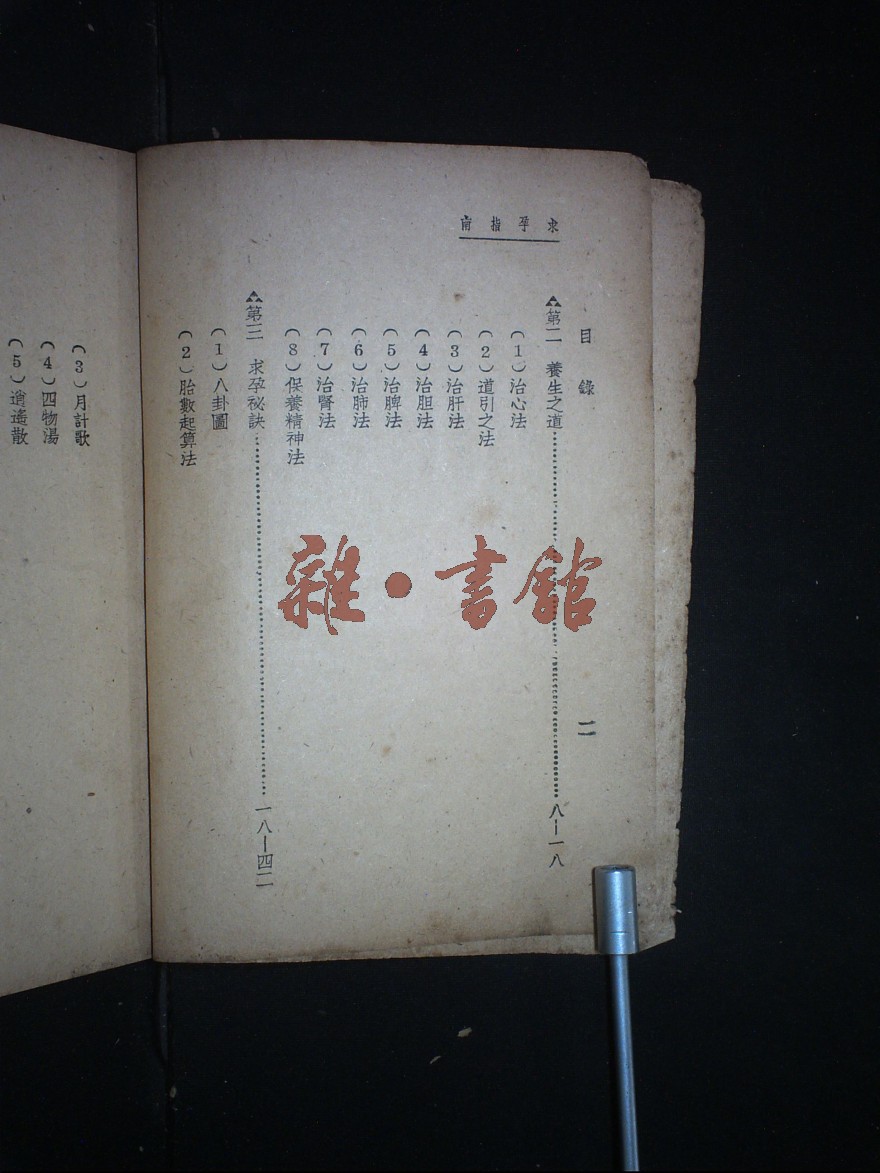 求孕指南
目錄
二
第二 養生之道…………八—一八
(1)治心法
(2)道引之法
(3)治肝法
(4)治胆法
(5)治脾法
(6)治肺法
(7)治腎法
(8)保養精神法
第三 求孕祕訣…………一八—四二
(1)八卦圖
(2)胎數起算法
(3)月計歌
(4)四物湯
(5)逍遙散
雜·書館